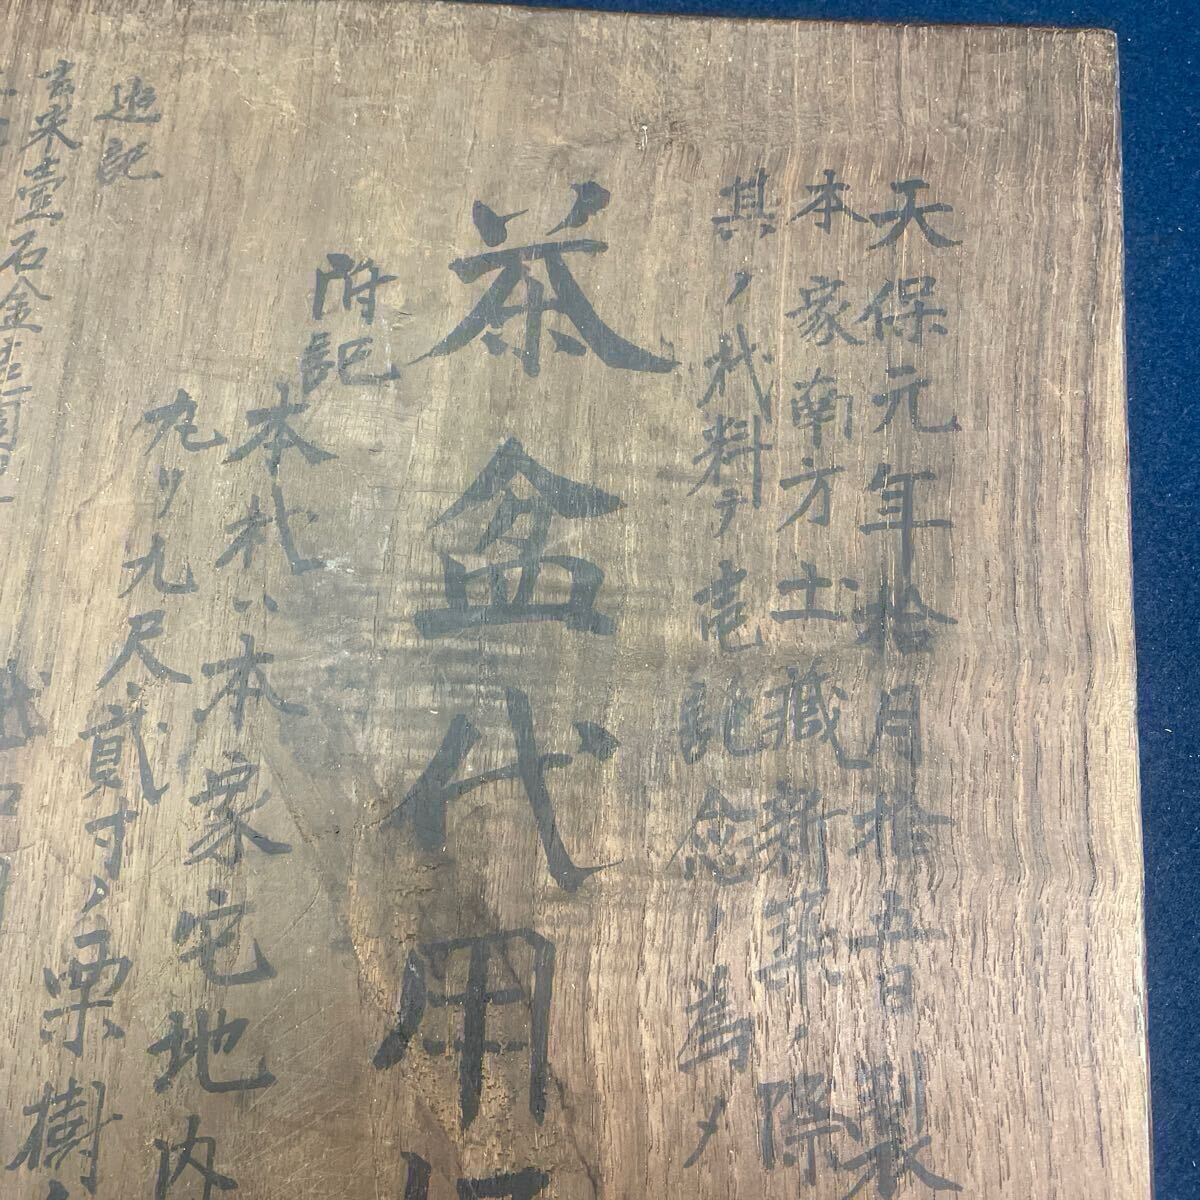 天保元年拾月拾五日製
本家南方土蔵新築ノ際
其ノ残料ヲ壱記念ノ為メ
茶盆代用
附記
本札ハ本家宅地内
九リ九尺貳寸ノ栗樹
追記
玄米壹石金